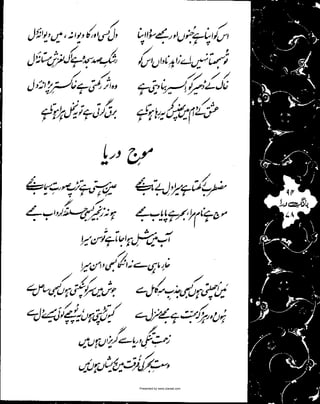 اس کو اپنا ہے جنوں اور مجھے سودا اپنا دل کسی اور کا دیوانہ ، میں دیوانۂ دل
تو سمجھتا نہیں اے زاہدِ ناداں اس کو رشکِ صد سجدہ ہے اک لغزشِ مستانۂ دل
خاک کے ڈھیر کو اکسیر بنا دیتی ہے وہ اثر رکھتی ہے خاکسترِ پروانۂ دل
عشق کے دام میں پھنس کر یہ رہا ہوتا ہے برق گرتی ہے تو یہ نخل ہرا ہوتا ہے
موجِ دریا
مضطرب رکھتا ہے میرا دلِ بے تاب مجھے عینِ ہستی ہے تڑپ صورتِ سیماب مجھے
موج ہے نام مرا ، بحر ہے پایاب مجھے ہو نہ زنجیر کبھی حلقۂ گرداب مجھے
آب میں مثلِ ہوا جاتا ہے توسن میرا
خارِ ماہی سے نہ اٹکا کبھی دامن میرا
میں اچھلتی ہوں کبھی جذبِ مہِ کامل سے جوش میں سر کو پٹکتی ہوں کبھی ساحل سے
ہوں وہ رہرو کہ محبت ہے مجھے منزل سے کیوں تڑپتی ہوں ، یہ پوچھے کوئی میرے دل سے
زحمتِ تنگیِ دریا سے گریزاں ہوں میں
وسعتِ بحر کی فرقت میں پریشاں ہوں میں
۹۴
بانگِ درا
۷۸